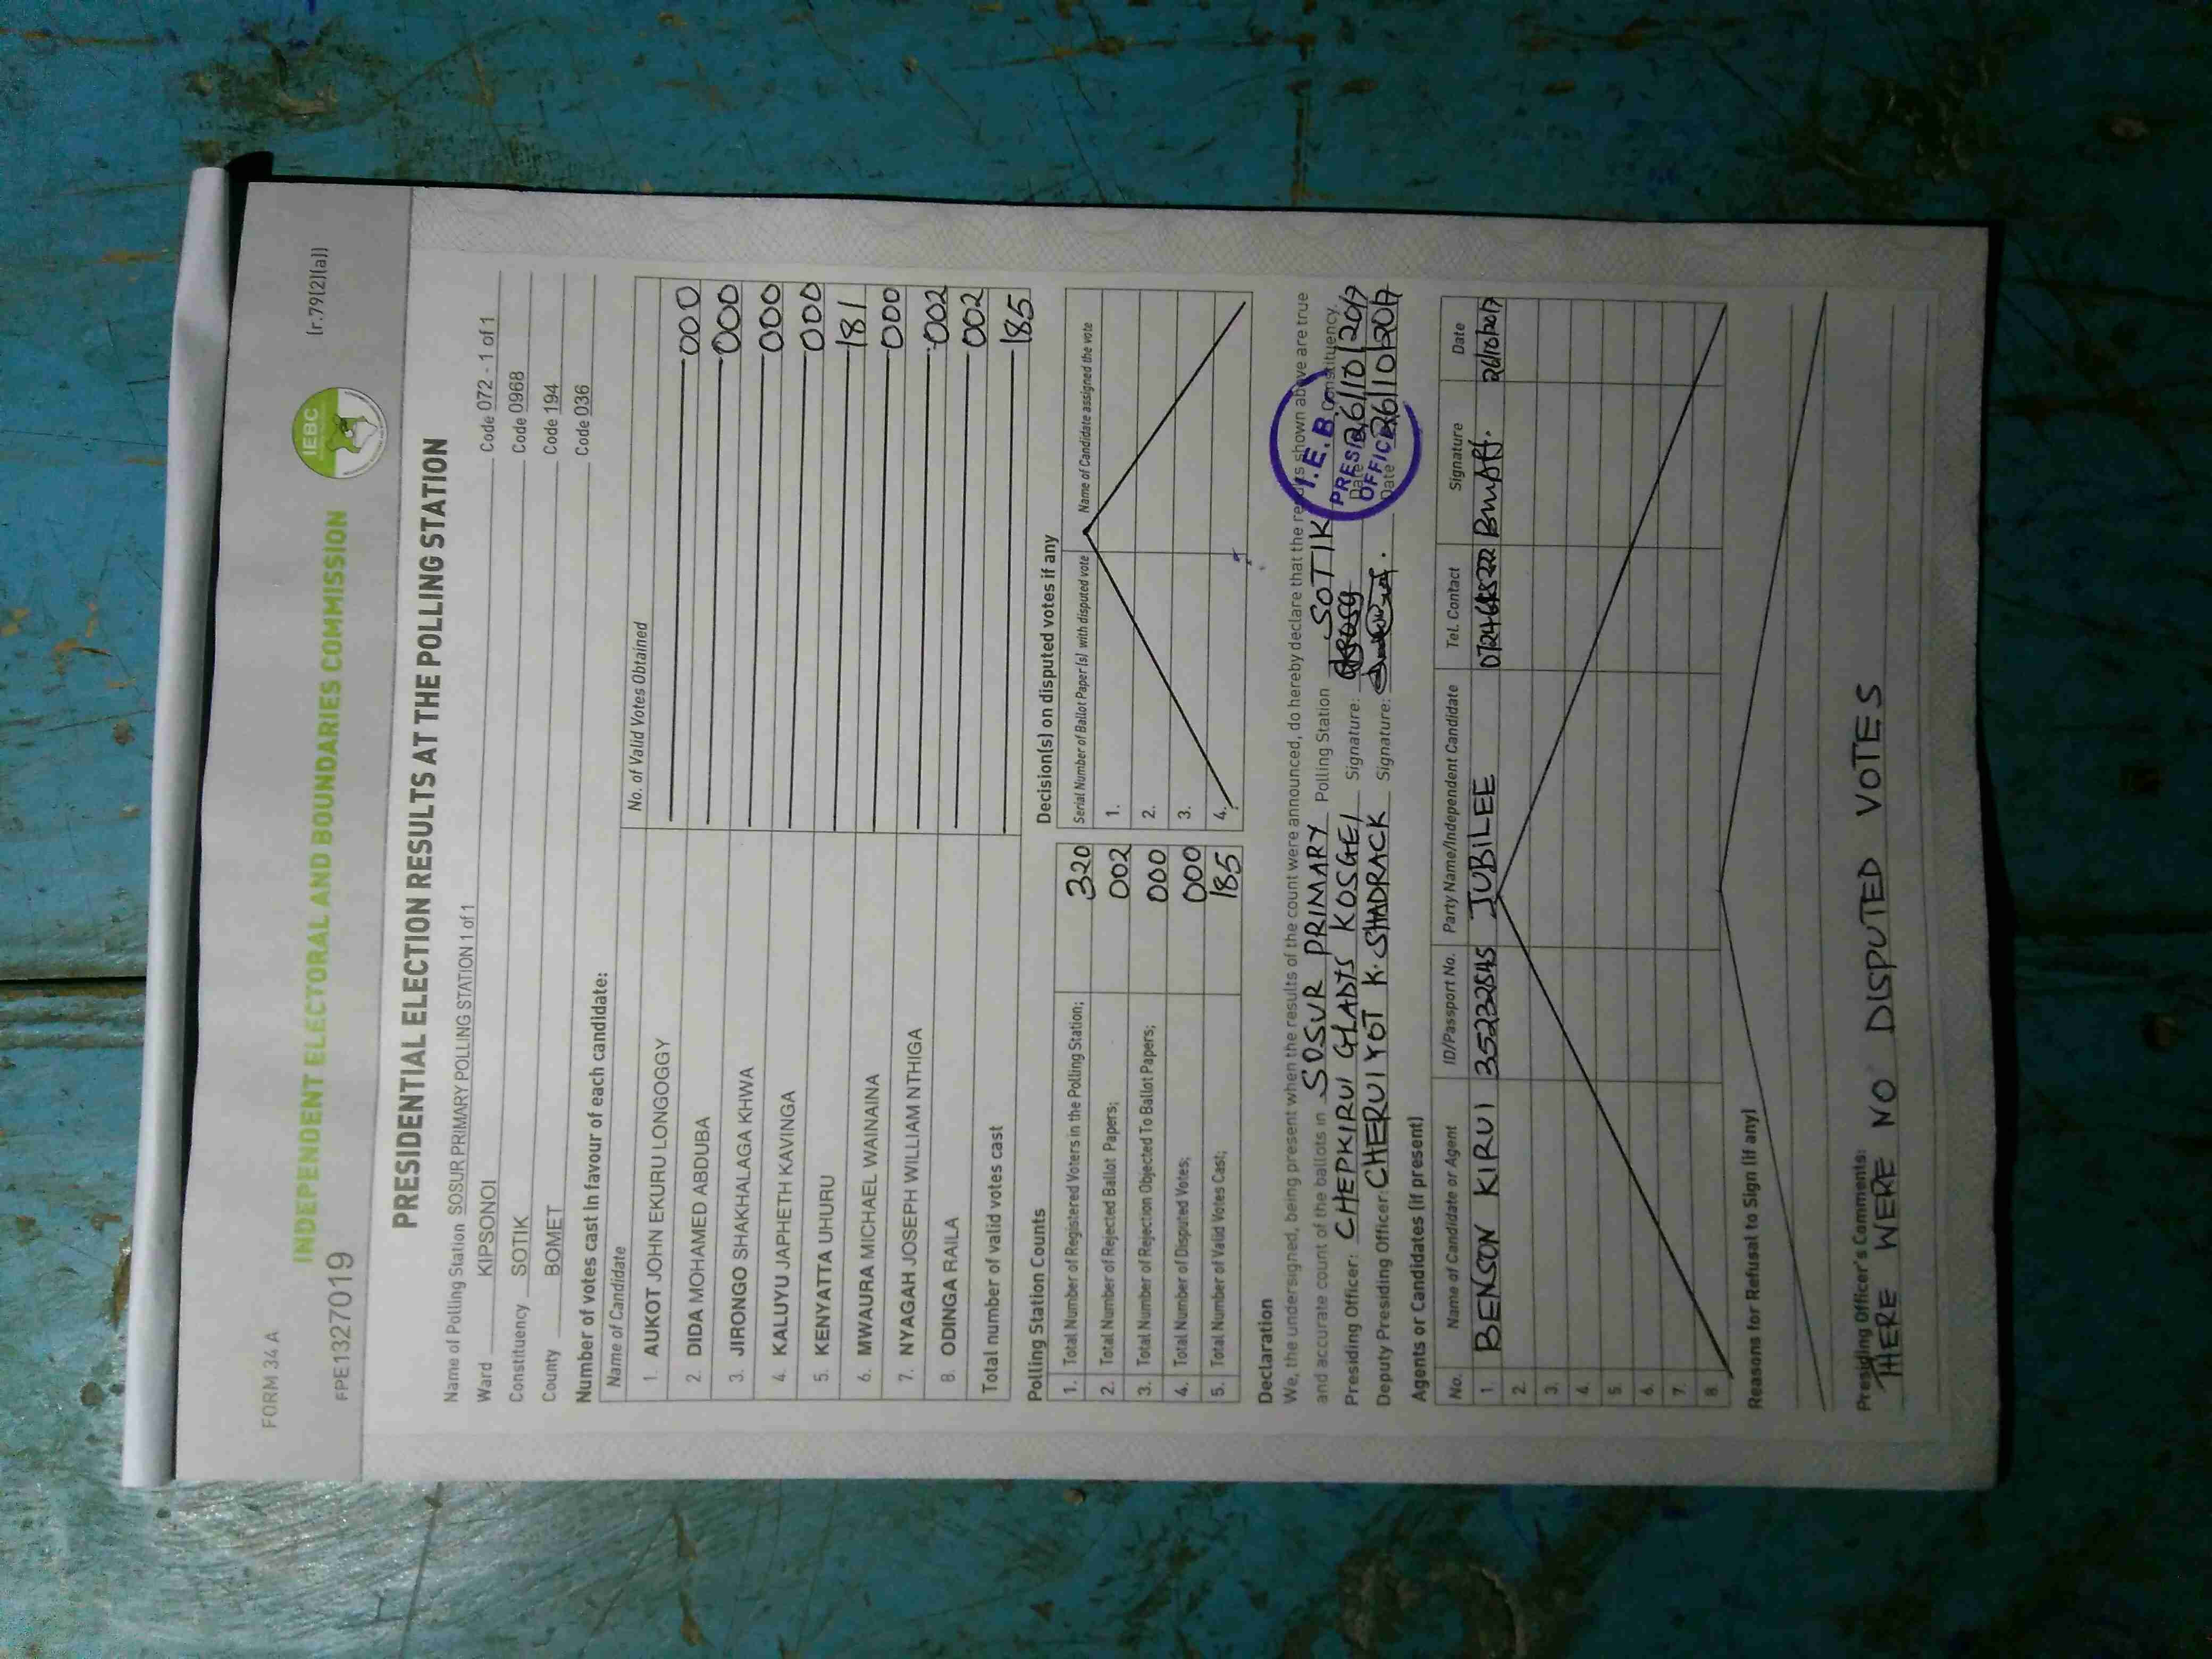 FORM 34 A
(r.79(2)(a))
IEBC
INDEPENDENT ELECTORAL AND BOUNDARIES COMMISSION
FPE1327019
PRESIDENTIAL ELECTION RESULTS AT THE POLLING STATION
Name of Polling Station SOSUR PRIMARY POLLING STATION 1 of 1 Code 072 - 1 of 1
Ward KIPSONOI Code 0968
Constituency SOTIK Code 194
County BOMET Code 036
Number of votes cast in favour of each candidate:
Name of Candidate No. of Valid Votes Obtained
1. AUKOT JOHN EKURU LONGOGGY 000
2. DIDA MOHAMED ABDUBA 000
3. JIRONGO SHAKHALAGA KHWA 000
4. KALUYU JAPHETH KAVINGA 000
5. KENYATTA UHURU 181
6. MWAURA MICHAEL WAINAINA 000
7. NYAGAH JOSEPH WILLIAM NTHIGA 002
8. ODINGA RAILA 002
Total number of valid votes cast 185
Polling Station Counts
1. Total Number of Registered Voters in the Polling Station; 320
2. Total Number of Rejected Ballot Papers; 002
3. Total Number of Rejection Objected To Ballot Papers; 000
4. Total Number of Disputed Votes; 000
5. Total Number of Valid Votes Cast; 185
Decision(s) on disputed votes if any
Serial Number of Ballot Paper(s) with disputed vote Name of Candidate assigned the vote
1.
2.
3.
4.
Declaration
We, the undersigned, being present when the results of the count were announced, do hereby declare that the results shown above are true
and accurate count of the ballots in SOSUR PRIMARY Polling Station SOTIK Constituency.
Presiding Officer: CHEPKIRUI GLADYS KOSGEI Signature: Date 26/10/2017
Deputy Presiding Officer: CHERUIYOT K. SHADRACK Signature: Date 26/10/2017
I.E.B.C
PRESIDING
OFFICER
Agents or Candidates (if present)
No. Name of Candidate or Agent ID/Passport No. Party Name/Independent Candidate Tel. Contact Signature Date
1. BENSON KIRUI 35232545 JUBILEE 26/10/2017
2.
3.
4.
5.
6.
7.
8.
Reasons for Refusal to Sign (if any)
Presiding Officer's Comments:
THERE WERE NO DISPUTED VOTES